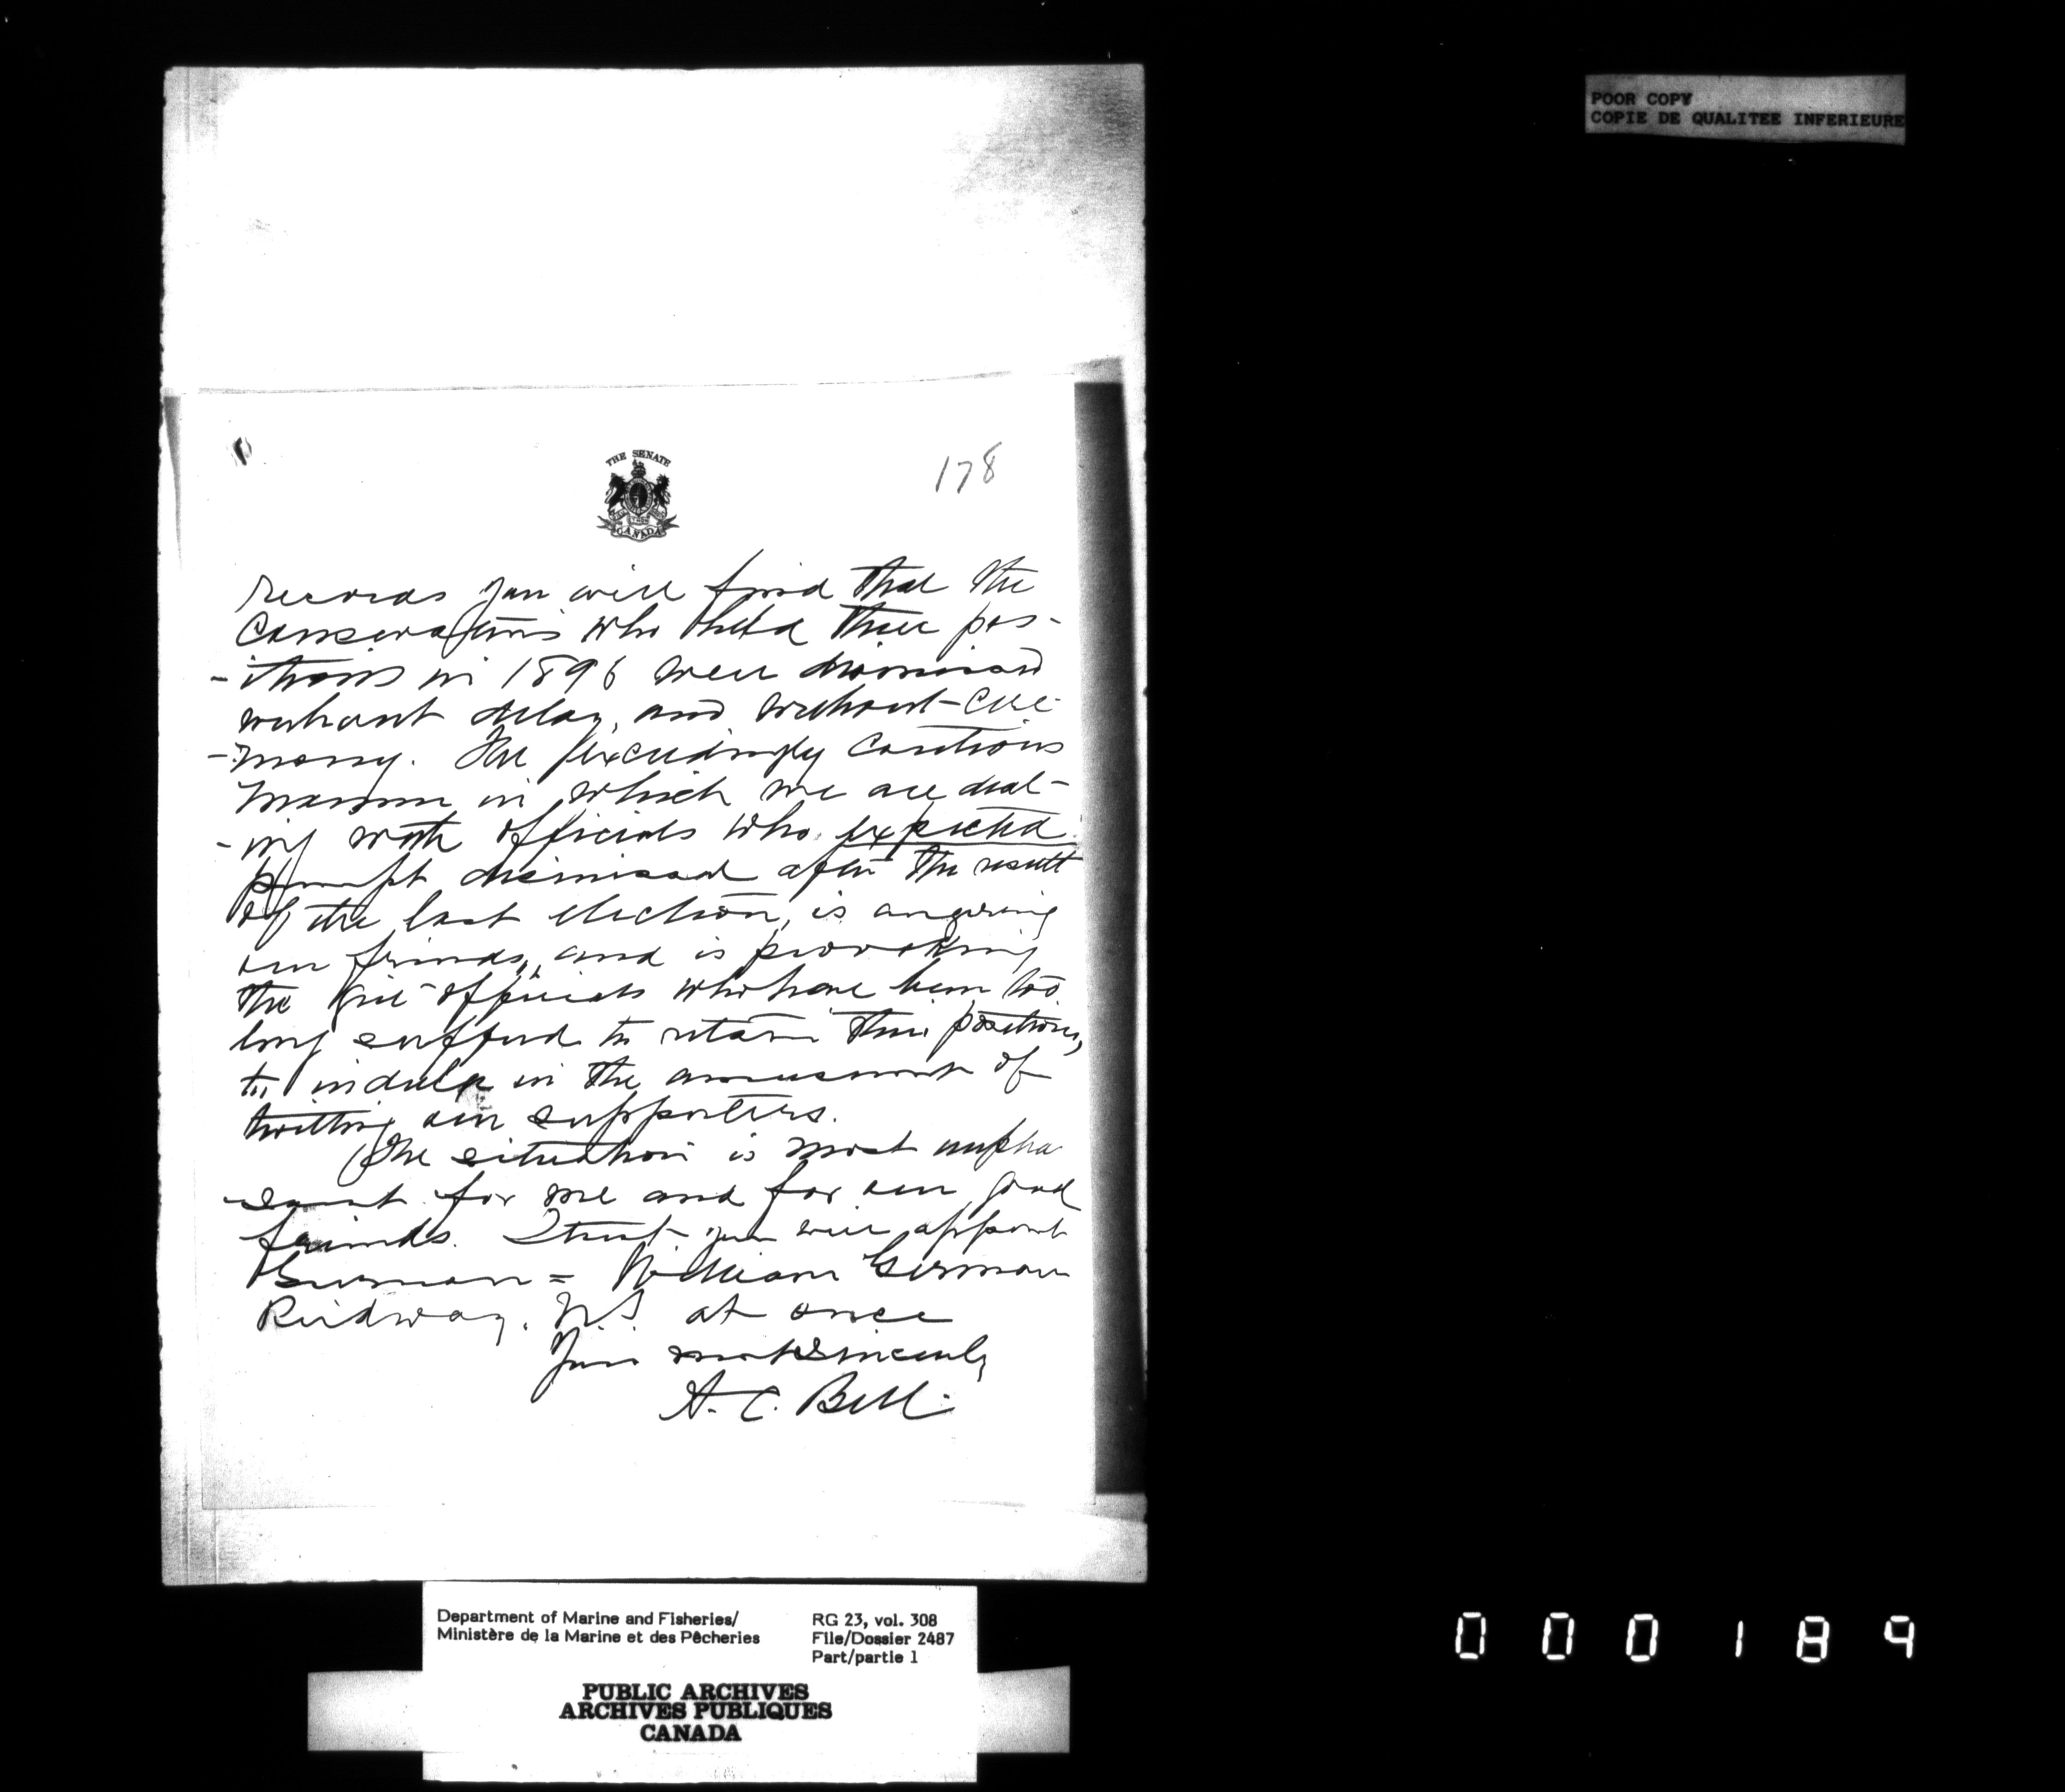 POOR COPY
COPIE DE QUALITEE INFERIEURE
THE SENATE
CANADA
178
records you will find that the
Conservatives who held these pos-
-itions in 1896 were dismissed
without delay, and without cere-
-mony. The exceedingly cautious
manner in which we are deal-
-ing with officials who expected
prompt dismissal after the result
of the last election, is angering
our friends, and is provoking
the Grit officials who have been too
long suffered to retain their positions,
to indulge in the amusement of
twitting our supporters.
The situation is most unplea
-sant for me and for our good
friends. I trust you will appoint
William
at once
Yours most sincerely
A. C. Bell
Department of Marine and Fisheries/
Ministère de la Marine et des Pêcheries
RG 23, vol. 308
File/Dossier 2487
Part/partie 1
PUBLIC ARCHIVES
ARCHIVES PUBLIQUES
CANADA
000189